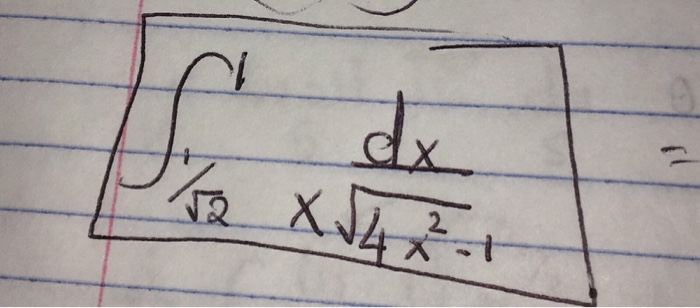 ∫_{1/√2}^{1} dx / (x√(4x² - 1)) =